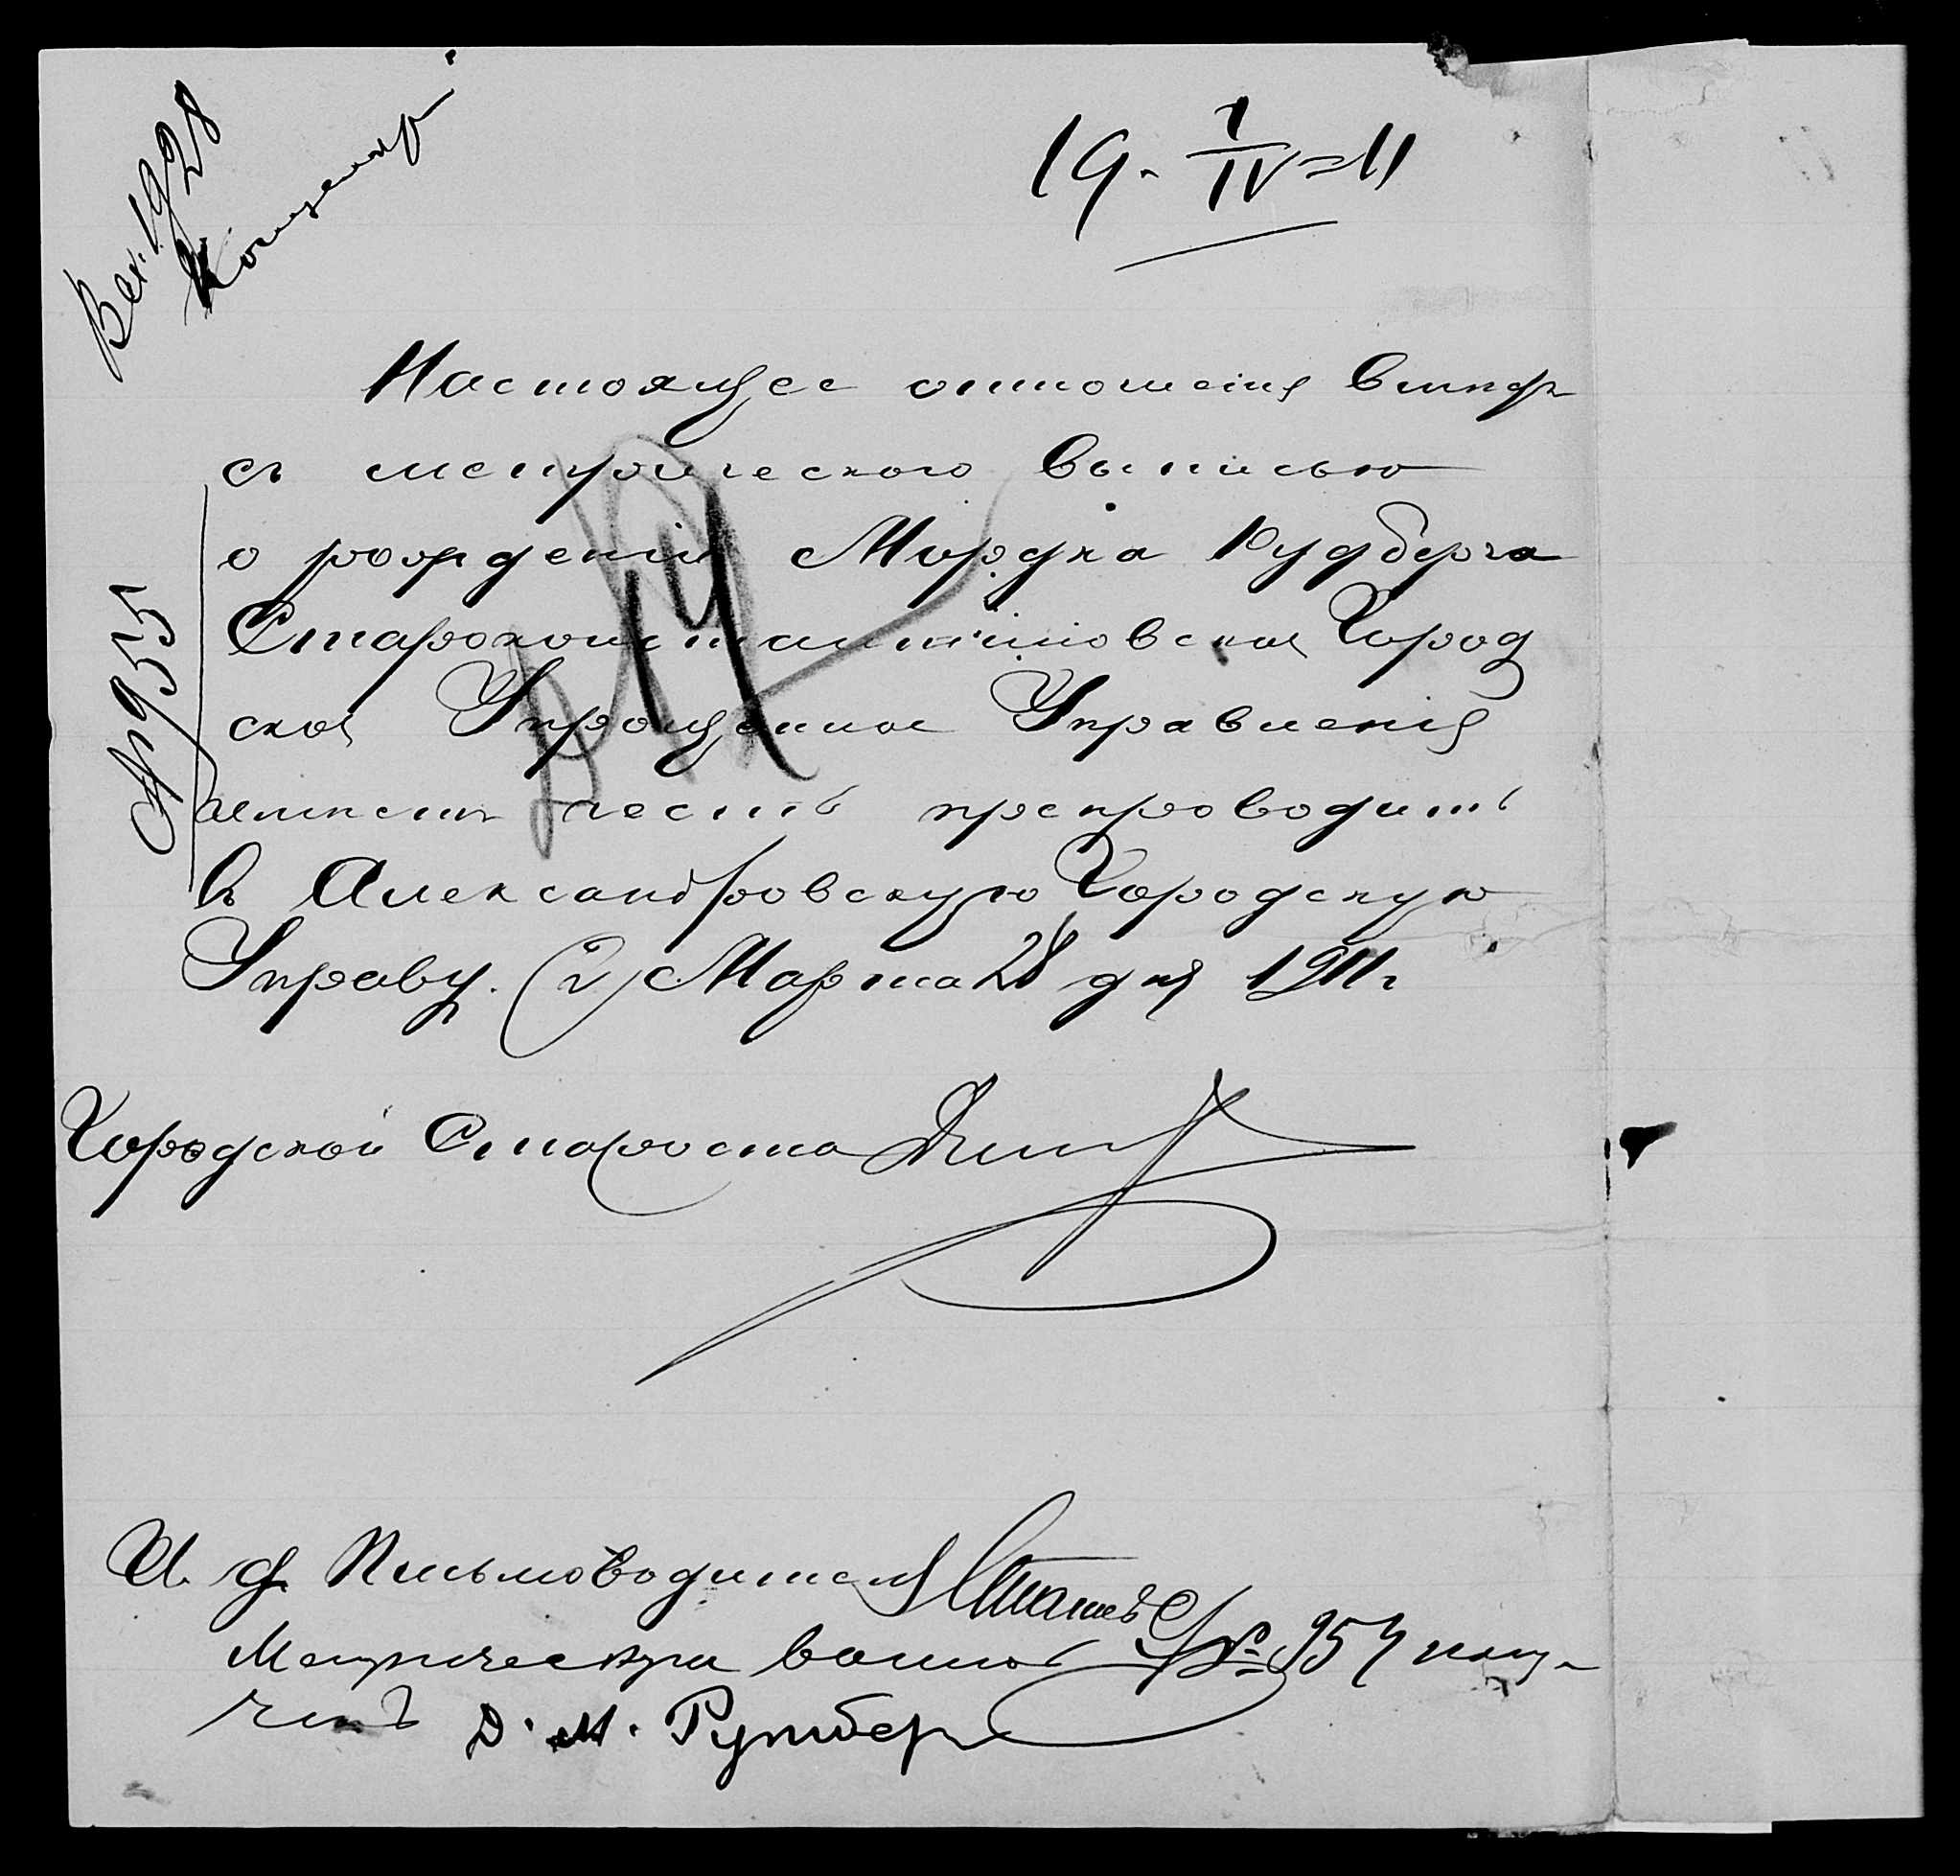 Вх. 1928
19 1/IV 11
Настоящее отношенія вмѣстѣ
съ метрическою выписью
о рожденіи Мордка Рудберга
Староконстантиновское Город
ское Упрощенное Управленія
№ 955
имѣетъ честь препроводить
въ Александровскую Городскую
Управу. Марта 28 дня 1911 г
Городской Староста
И. ф. Письмоводителя
Метрическую
№ 954 полу-
чилъ Д. М. Рутберг